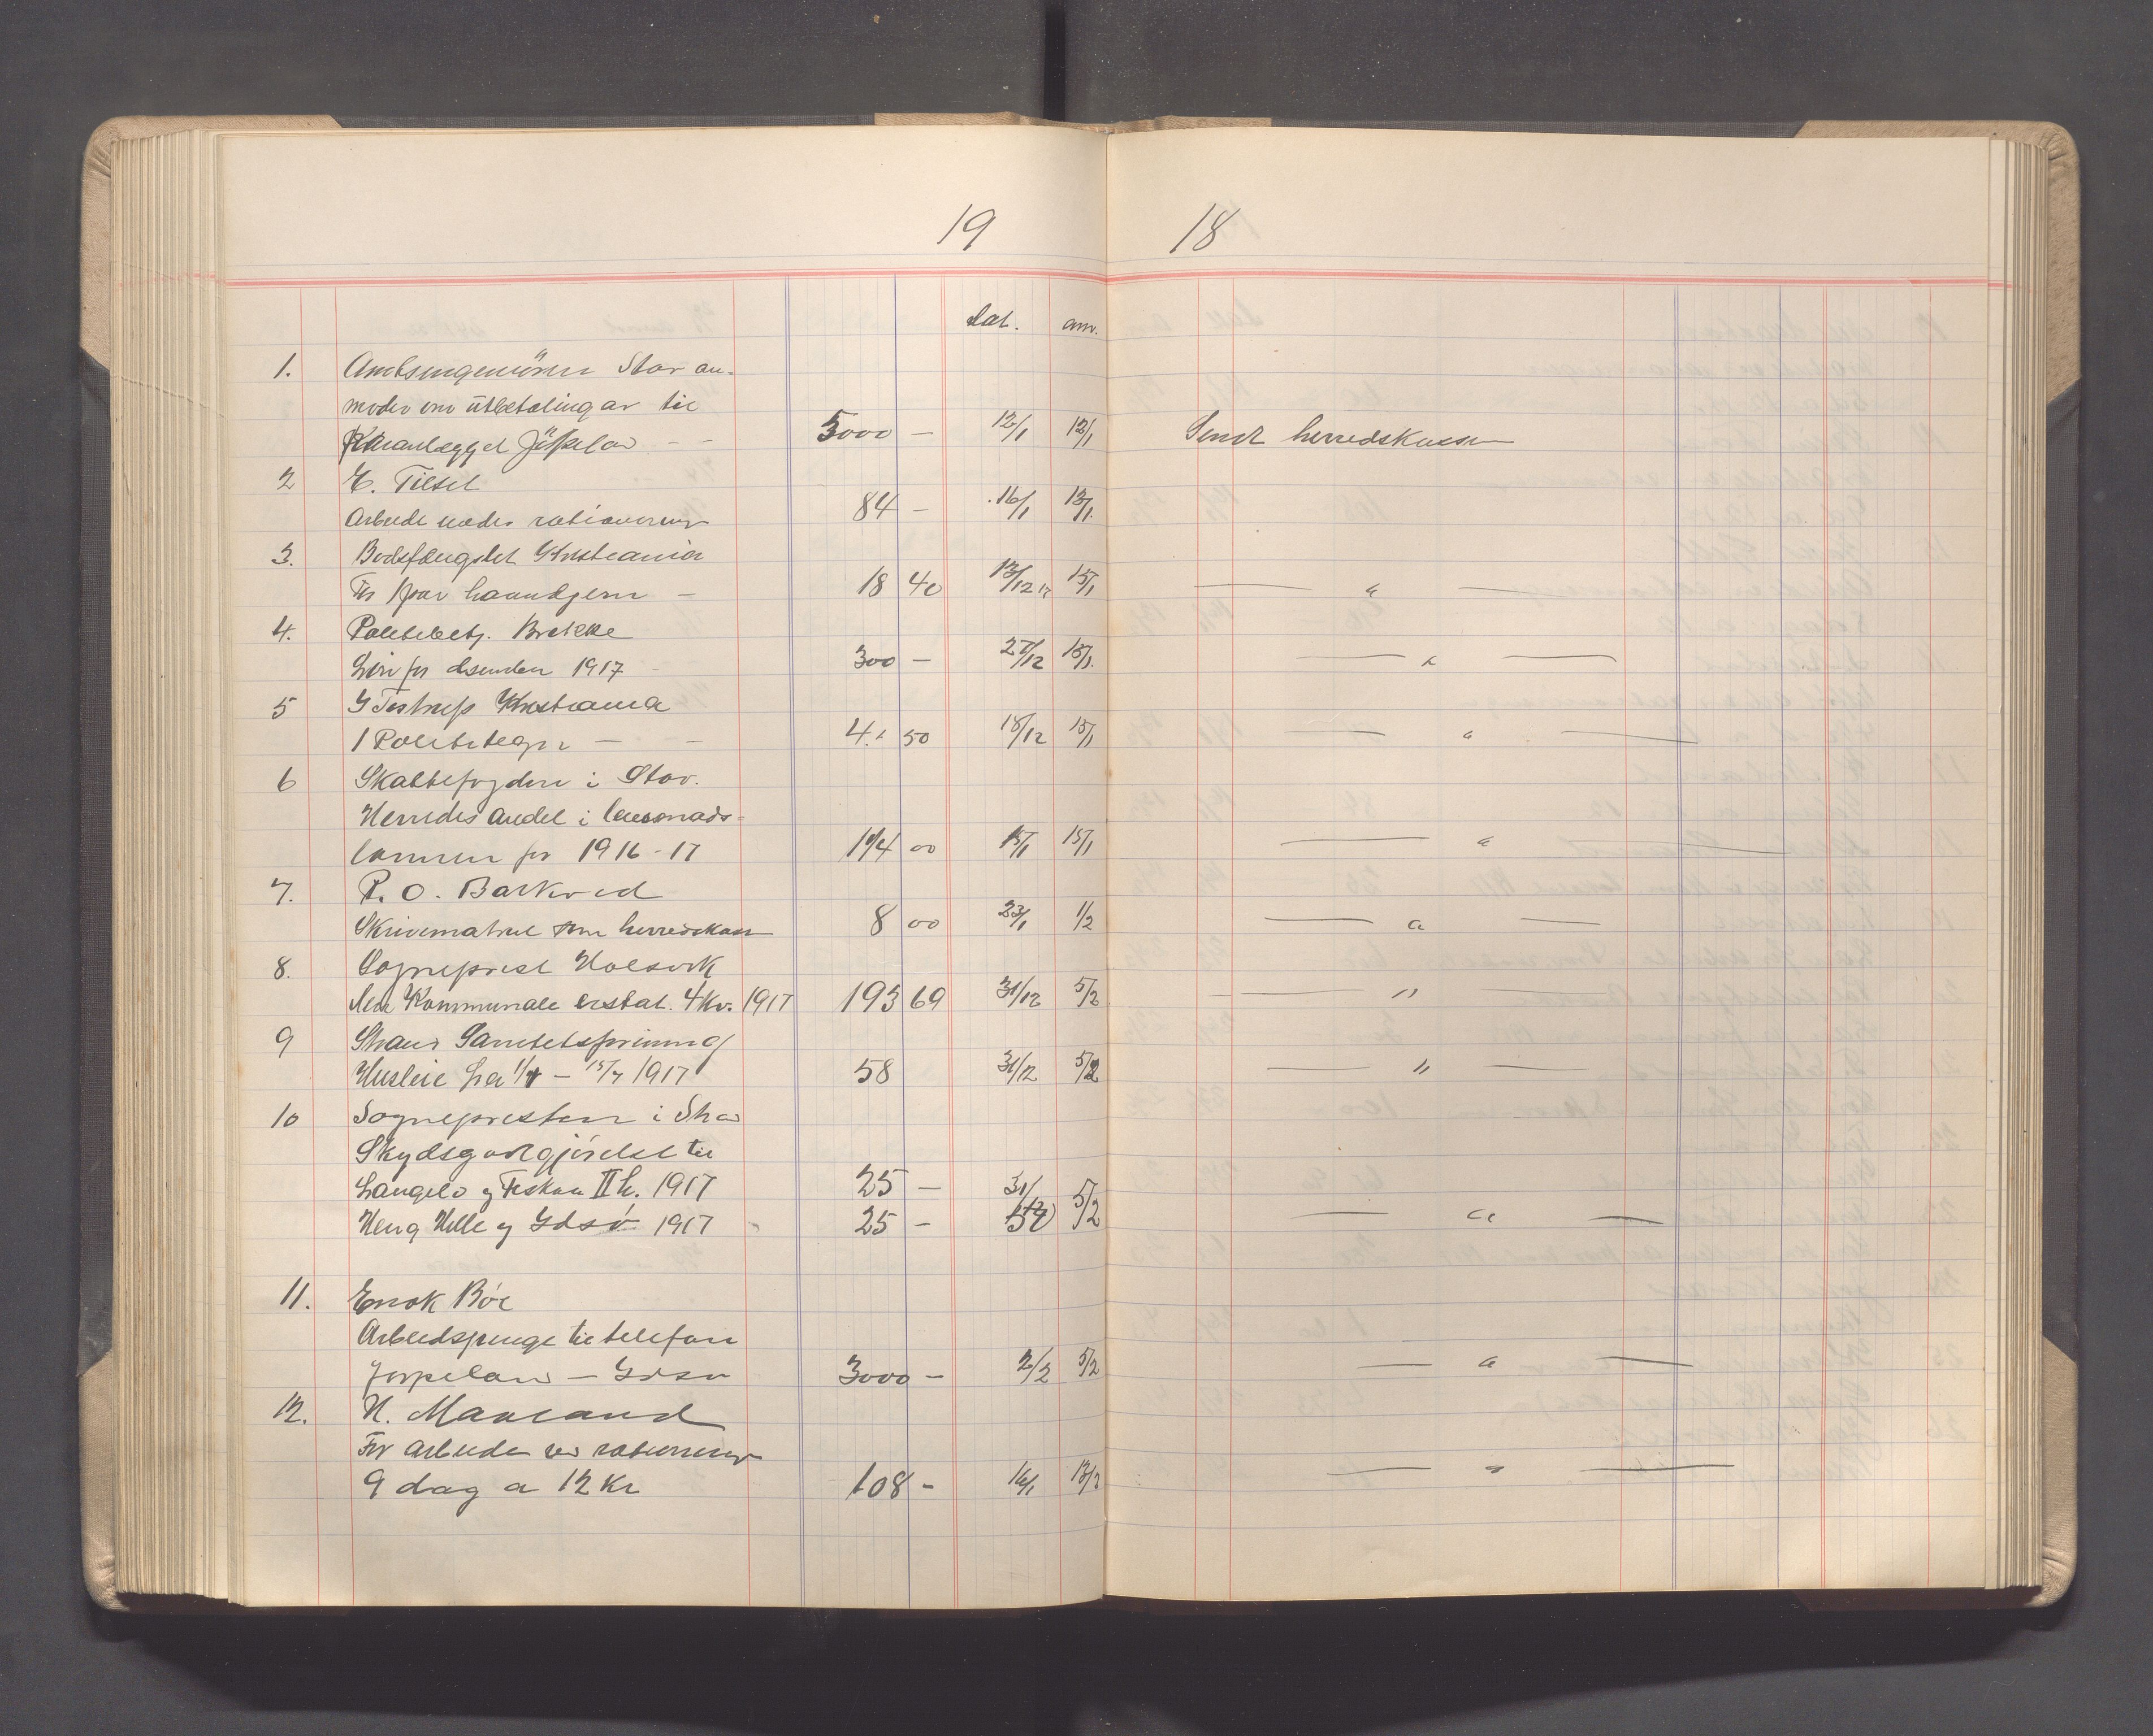 19 18
dat. anv.
1. Amtsingeniøren Stav an-
moder om utbetaling av til
Kaianlegget Jöspeland - - 5000 - 12/1 12/1 Sendt herredskassen
2 E. Tilset
Arbeide under rationering 84 - 16/1 13/1
3. Bodsfængslet Kristiania
For 1 par haandjern - 18 40 13/12 17 15/1 — " —
4. Politibetj. Brekke
Løn for desember 1917 300 - 27/12 15/1 — " —
5 G Testrup Kristiania
1 Polititegn - - 4 50 18/12 15/1 — " —
6 Skattefogden i Stav.
Herredes andel i lensmads-
lønnen for 1916-17 00 15/1 15/1 — " —
7. P. O. Barkved
Skrivematriel herredskass 8 00 23/1 1/2 — " —
8. Sogneprest Holsvik
Den Kommunale erstat. 4 kv. 1917 193 69 31/12 5/2 — " —
9 Strand Samtetsforening
Husleie fra 1/1 - 15/7 1917 58 31/12 5/2 — " —
10 Sognepresten i Strand
Skydsgodtgjørelse til
Langelo og Fiskaa II h. 1917 25 - 31/12
Heng Helle og Idsø 1917 25 - 5/2 — " —
11. Enok Bøe
Arbeidspenge til telefon
Jørpeland - Idsø 3000 - 2/2 5/2 — " —
12. H. Maaland
For arbeide ved rationering
9 dag a 12 Kr 108 - 16/1 13/2 — " —